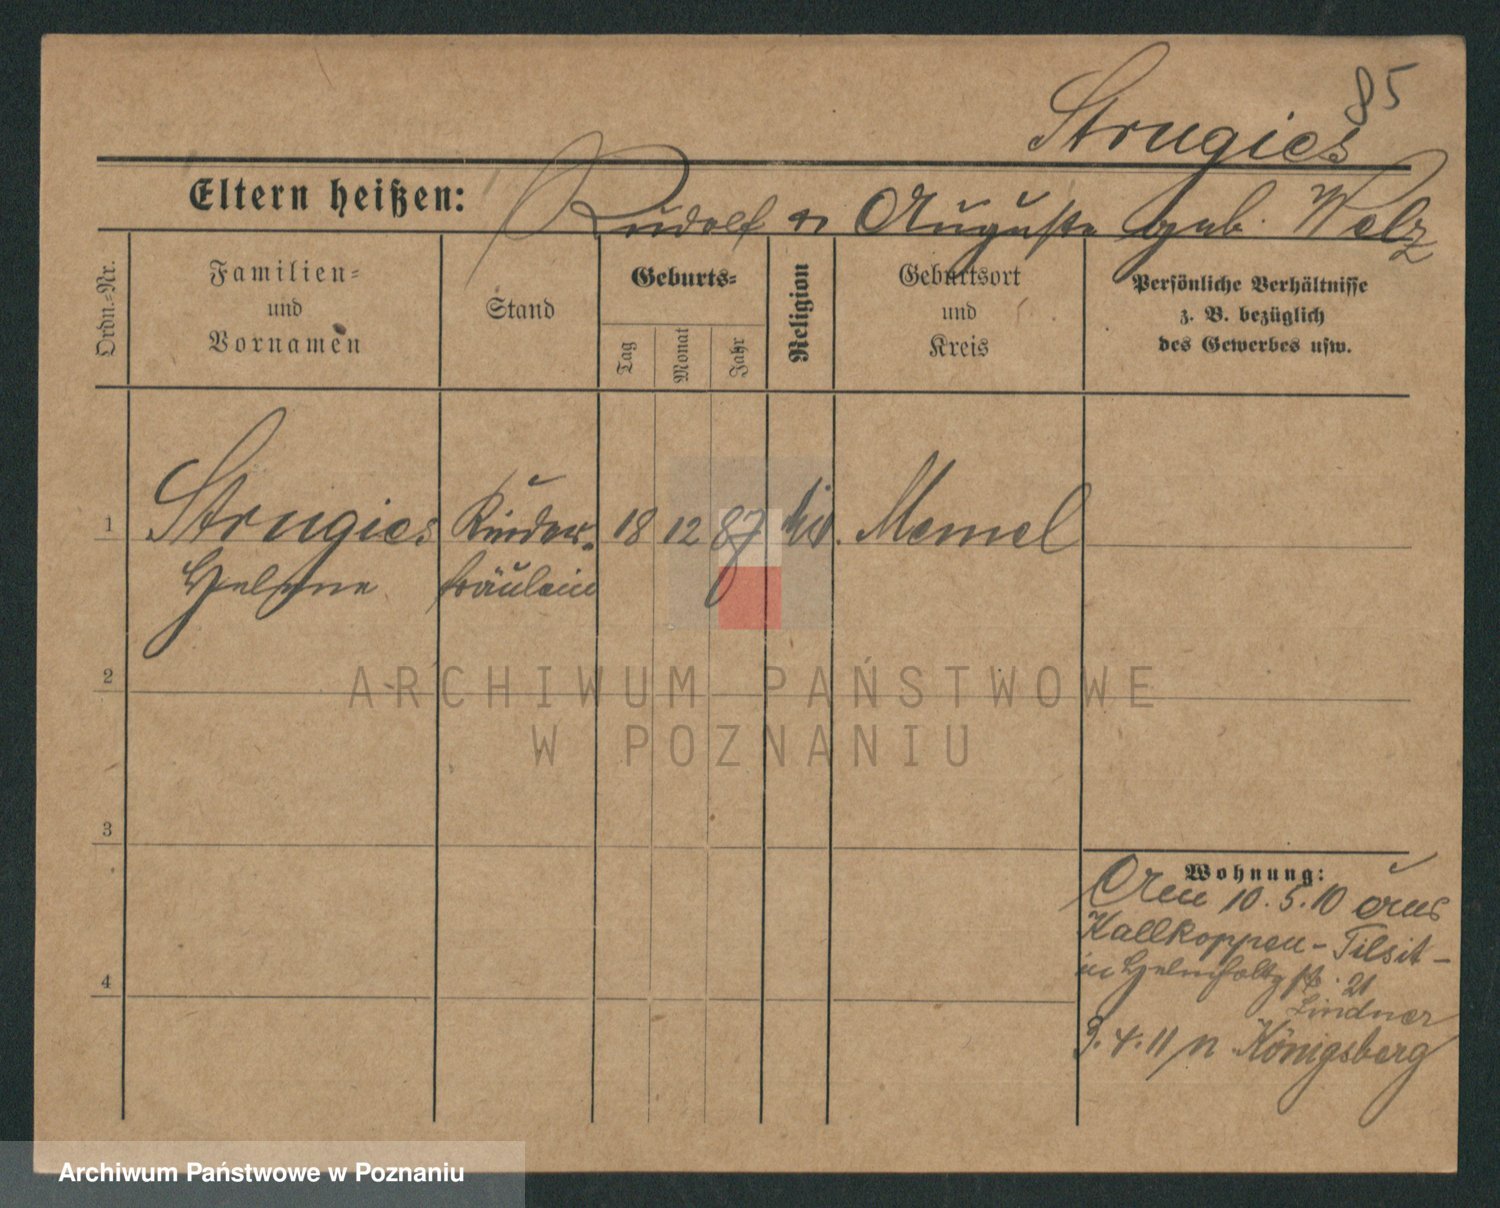 85
Strugies
Eltern heißen: Rudolf u Auguste geb. Welz
Ordn.-Nr.
Familien-
und
Vornamen
Stand
Geburts-
Tag
Monat
Jahr
Religion
Geburtsort
und
Kreis
Persönliche Verhältnisse
z. B. bezüglich
des Gewerbes usw.
1 Strugies Kinder- 18 12 87 Memel
Helene fräulein
2
3
4
Wohnung:
10.5.10 aus
Kallkoppen - Tilsit -
in Helmholtzstr. 21
Lindner
3.4.11 n Königsberg
ARCHIWUM PAŃSTWOWE
W POZNANIU
Archiwum Państwowe w Poznaniu